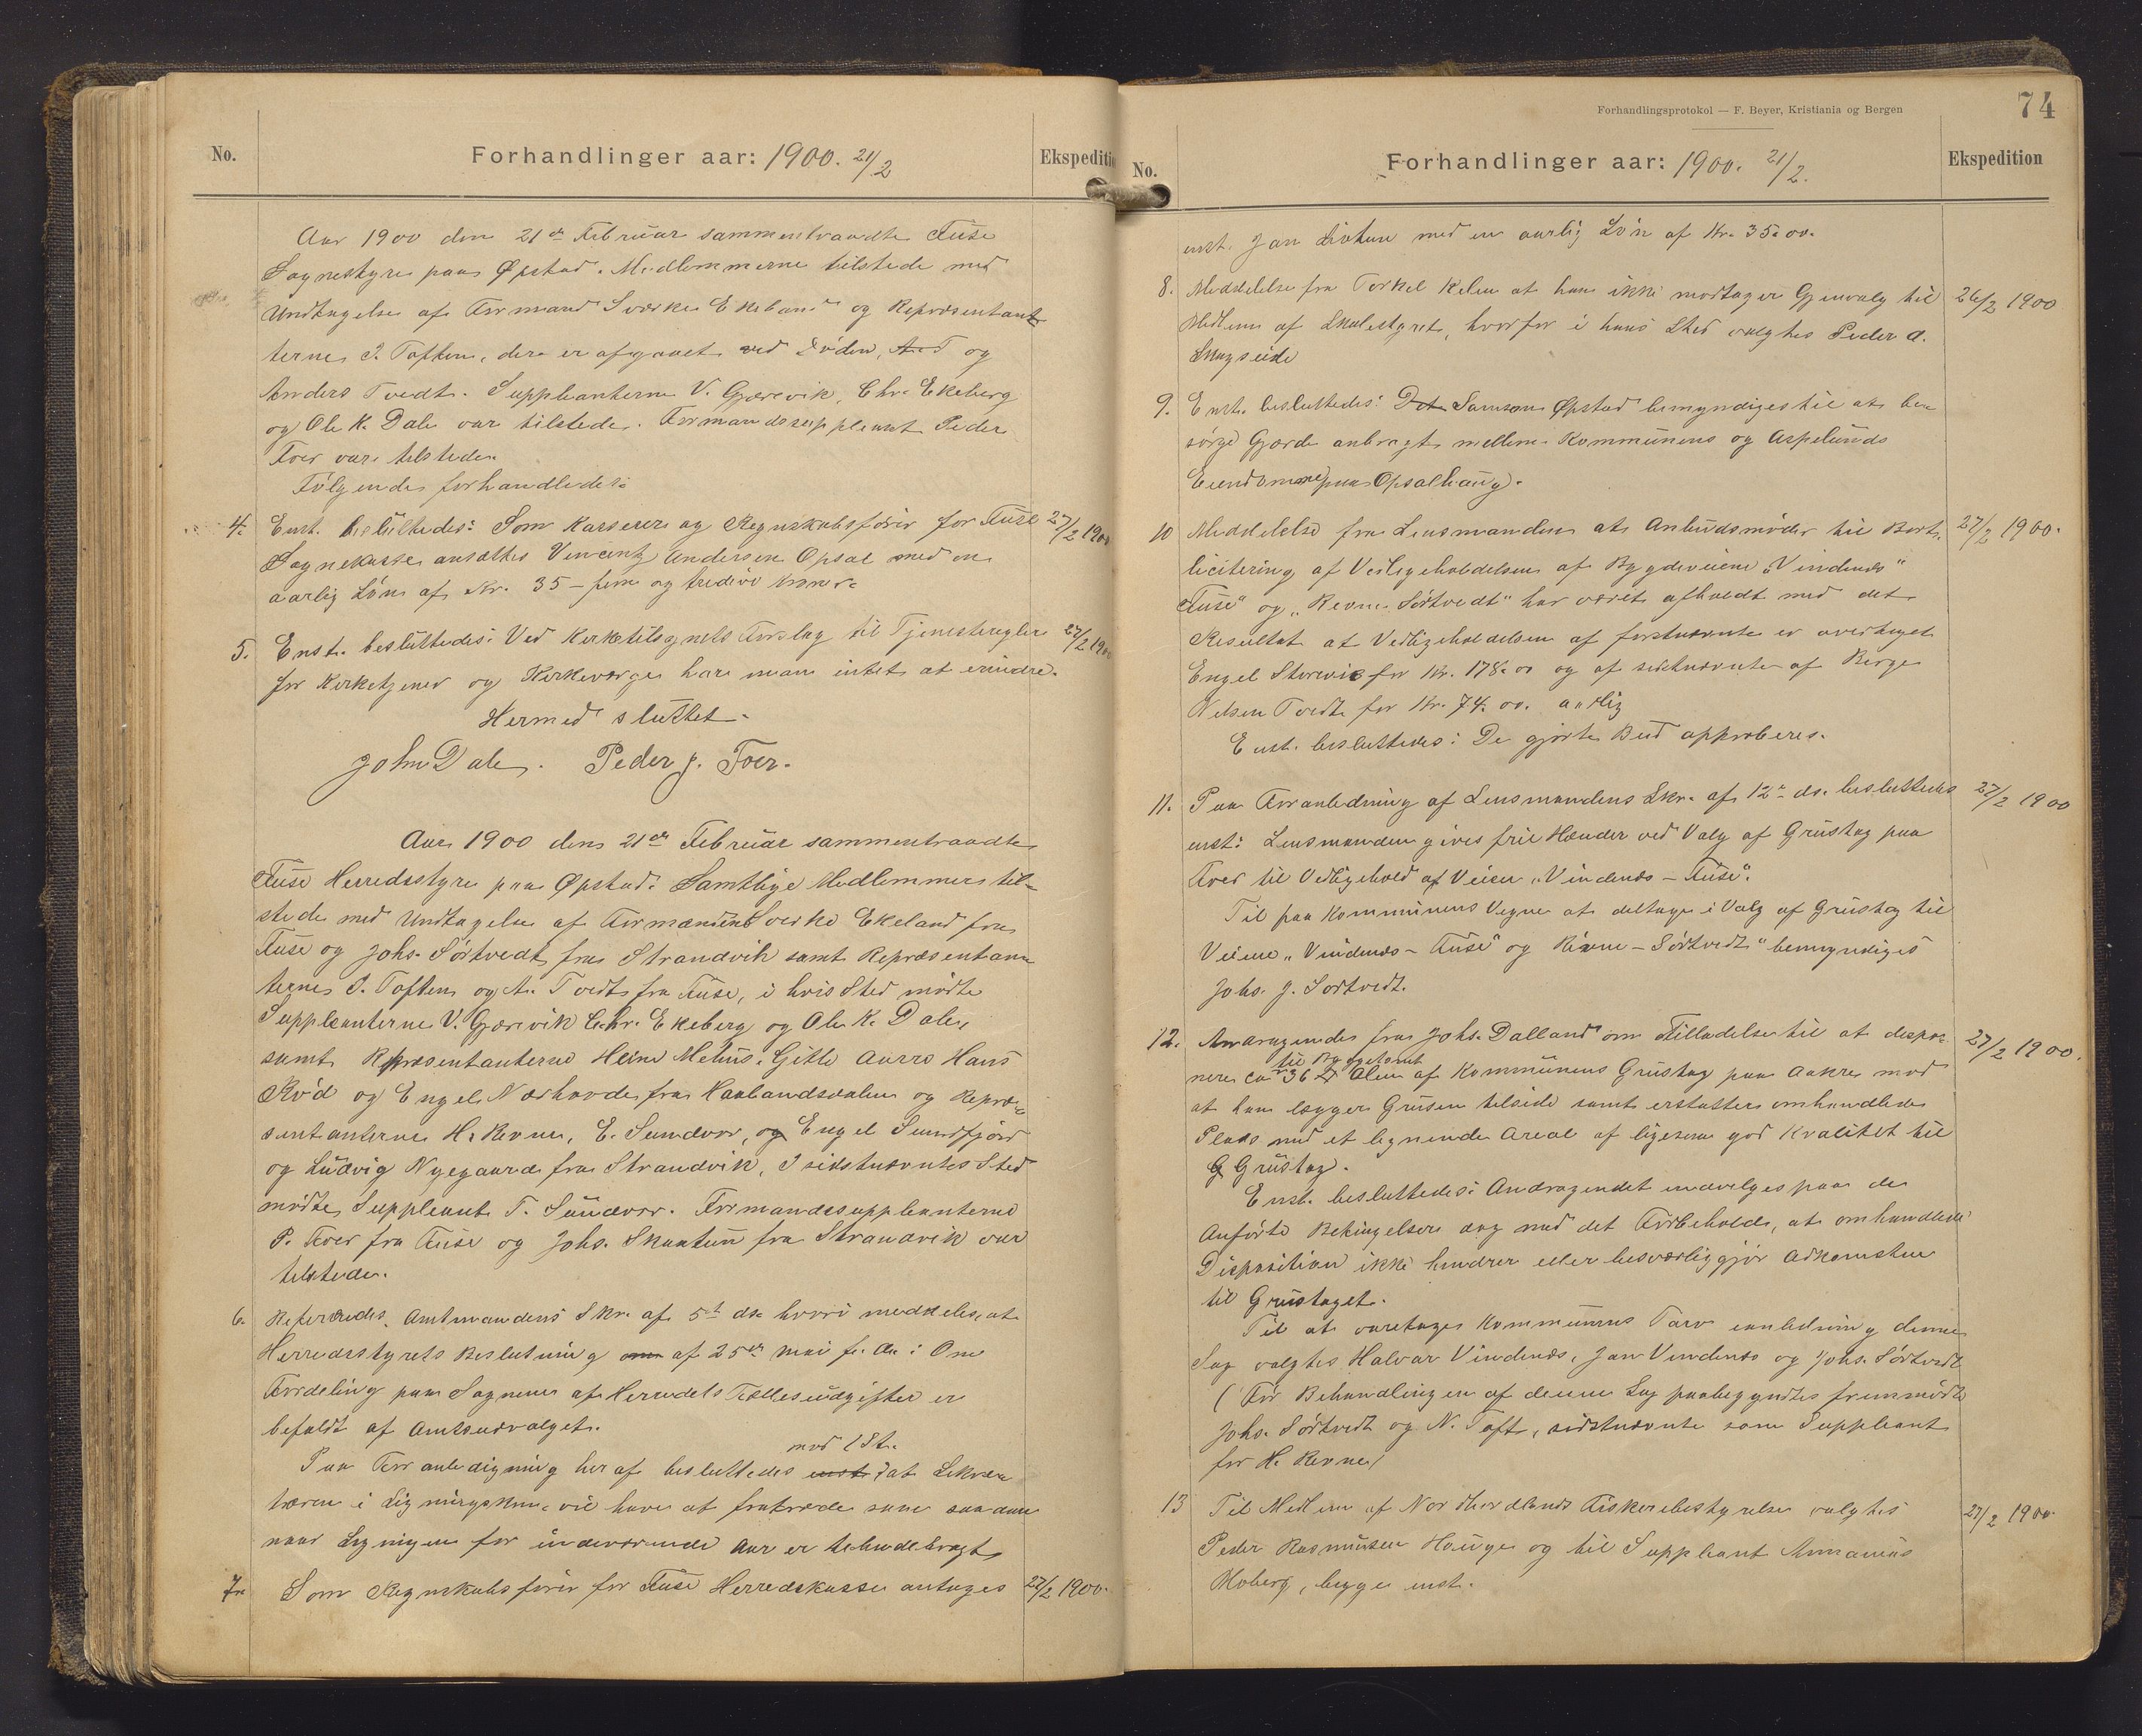 No.
Forhandlinger aar: 1900. 21/2
Ekspeditio
Aar 1900 den 21de Februar sammentraadte Fuse
Sognestyre paa Øpstad. Medlemmerne tilstede med
Undtagelse af Formand Sverke Ekeland og Repræsentant
ternes I. Toften, der er afgaaet ved Døden, og
Anders Tvedt. Suppleanterne V. Gjærevik, Chr. Ekeberg
og Ole K. Dale var tilstede. Formandssuppleant Peder
Foer var tilstede.
Følgende forhandledes:
4. Enst. besluttedes: Som Kasserer og Regnskabsfører for Fuse 27/2 1900
Sognekasse ansættes Vincentz Andersen Opsal med en
aarlig Løn af Kr. 35 – fem og tredive Kroner.
5. Enst. besluttedes: Ved Kirketilsynets Forslag til Tjenesteregler 27/2 1900
for Kirketjener og Kirkeværge har man intet at erindre.
Hermed sluttet.
John Dale. Peder J. Foer.
Aar 1900 den 21de Februar sammentraadte
Fuse Herredsstyre paa Øpstad. Samtlige Medlemmer til-
stede med Undtagelse af Formændene Sverke Ekeland fra
Fuse og Johs. Sørtvedt fra Strandvik samt Repræsentan
ternes I. Toften og A. Tvedt fra Fuse, i hvis Sted mødte
Suppleanterne V. Gjærevik Chr. Ekeberg og Ole K. Dale,
samt Repræsentanterne Heine Mehus, Gitle Aarra Hans
Rød og Engel Nærhovde fra Haalandsdalen og Repræ-
sentanterne H. Revne, E. Sundvor, og Engel Sundfjord
og Ludvig Nygaard fra Strandvik, I sidstnævntes Sted
mødte Suppleant T. Sundvor. Formandssuppleanterne
P. Foer fra Fuse og Johs. Skaatun fra Strandvik var
tilstede.
6. Refereredes Amtmandens Skr. af 5te ds. hvori meddeles, at
Herredsstyrets Beslutning om af 25de Mai f. A. : Om
Fordeling paa Sognene af Herredets Fællesudgifter er
befaldt af Amtsudvalget.
mod 1 St.
Paa Foranledigning heraf besluttedes enst. at Sekre
tæren i Ligningskom. vil have at fratræde som saadan
naar Ligningen for indeværende Aar er tilendebragt
7. Som Regnskabsfører for Fuse Herredskasse antages 27/2 1900.
Forhandlingsprotokol — F. Beyer, Kristiania og Bergen
74
No.
Forhandlinger aar: 1900. 21/2.
Ekspedition
enst. Jan med en aarlig Løn af Kr. 35.00.
8. Meddelelse fra Torkel Kelen at han ikke modtager Gjenvalg til 26/2 1900
Medlem af Skolestyret, hvorfor i hans Sted valgtes Peder A.
Skugseide
9. Enst. besluttedes: Det Samson Øpstad bemyndiges til at be
sørge Gjærde anbragt mellem Kommunens og Aspelunds
Eiendomme paa Opsalhaug.
10 Meddelelse fra Lensmanden at Anbudsmøder til Bort- 27/2 1900.
licitering af Vedligeholdelsen af Bygdeveiene „Vindenes"
Fuse" og „Revne-Sørtvedt" har været afholdt med det
Resultat at Vedligeholdelsen af førstnævnte er overtaget
Engel Storvik for Kr. 178.00 og af sidstnævnte af Børge
Nilsen Tvedt for Kr. 74.00. aarlig
Enst. besluttedes: De gjorte Bud approberes.
11. Paa Foranledning af Lensmandens Skr. af 12te ds. besluttedes 27/2 1900
enst: Lensmanden gives frie Hænder ved Valg af Grustag paa
Foer til Vedligehold af Veien „Vindenes – Fuse".
Til paa Kommunens Vegne at deltage i Valg af Grustag til
Veiene „Vindenes – Fuse" og Revne – Sørtvedt" bemyndiges
Johs. J. Sørtvedt.
12. Andragendes fra Johs. Dalland om Tilladelse til at dispo- 27/2 1900.
til Byggetomt
nere ca 36 □ Alen af Kommunens Grustag paa Aakre mod
at han lægger Grusen tilside samt erstatter omhandlede
Plads med et lignende Areal af ligesaa god Kvalitet til
G Grustag.
Enst. besluttedes: Andragendet indvilges paa de
Anførte Betingelser dog med det Forbehold, at omhandlede
Disposition ikke hindrer eller besværliggjør Adkomsten
til Grustaget.
Til at varetage Kommunens Tarv i anledning denne
Sag valgtes Halvar Vindenes, Jan Vindenes og Johs. Sørtvedt
(Før Behandlingen af denne Sag paabegyndtes fremmødte
Johs. Sørtvedt og N. Toft, sidstnævnte som Suppleant
for H. Revne)
13 Til Medlem af Nordhordlands Fiskeribestyrelse valgtes 27/2 1900
Peder Rasmussen Hauge og til Suppleant Annanias
Moberg, begge enst.